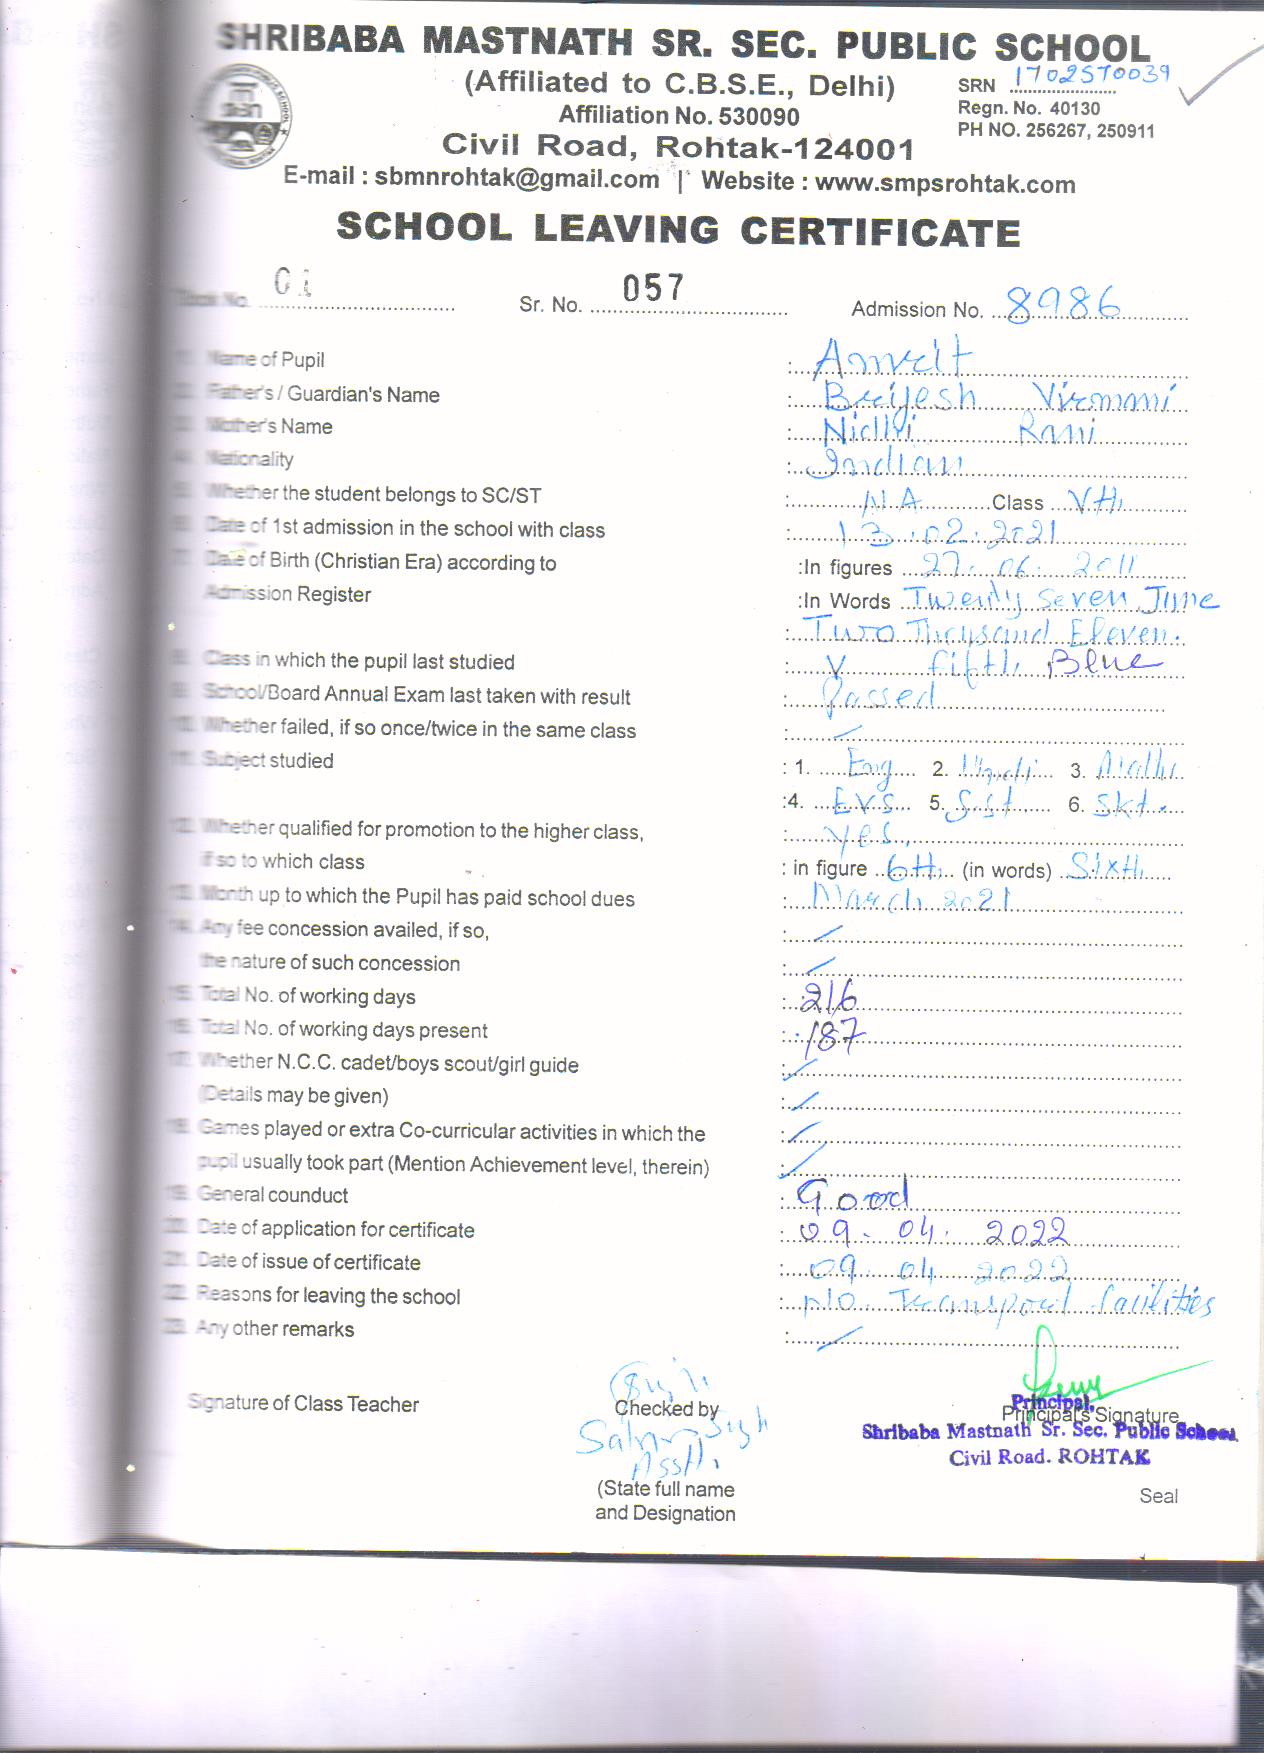 SHRIBABA MASTNATH SR. SEC. PUBLIC SCHOOL
(Affiliated to C.B.S.E., Delhi)
SRN 1702ST0039
Affiliation No. 530090
Regn. No. 40130
PH NO. 256267, 250911
Civil Road, Rohtak-124001
E-mail : sbmnrohtak@gmail.com | Website : www.smpsrohtak.com
SCHOOL LEAVING CERTIFICATE
Book No. 01 Sr. No. 057 Admission No. 8986
1. Name of Pupil : Amrit
2. Father's / Guardian's Name : Brijesh Virmani
3. Mother's Name : Nidhi Rani
4. Nationality : Indian
5. Whether the student belongs to SC/ST : N.A Class Vth
6. Date of 1st admission in the school with class : 13.02.2021
7. Date of Birth (Christian Era) according to :In figures 27.06.2011
Admission Register :In Words Twenty Seven June
: Two Thousand Eleven.
8. Class in which the pupil last studied : V fifth Blue
9. School/Board Annual Exam last taken with result : Passed
10. Whether failed, if so once/twice in the same class :
11. Subject studied : 1. Eng 2. Hindi 3. Maths
:4. EVS 5. S.st 6. Skt.
12. Whether qualified for promotion to the higher class, : Yes,
if so to which class : in figure 6th (in words) Sixth
13. Month up to which the Pupil has paid school dues : March 2021
14. Any fee concession availed, if so, :
the nature of such concession :
15. Total No. of working days : 216
16. Total No. of working days present : 187
17. Whether N.C.C. cadet/boys scout/girl guide :
(Details may be given) :
18. Games played or extra Co-curricular activities in which the :
pupil usually took part (Mention Achievement level, therein) :
19. General counduct : Good
20. Date of application for certificate : 09.04.2022
21. Date of issue of certificate : 09.04.2022
22. Reasons for leaving the school : No. Transport facilities
23. Any other remarks :
Signature of Class Teacher Checked by Principal's Signature
Principal,
Shribaba Mastnath Sr. Sec. Public School
Civil Road. ROHTAK
(State full name
and Designation
Seal